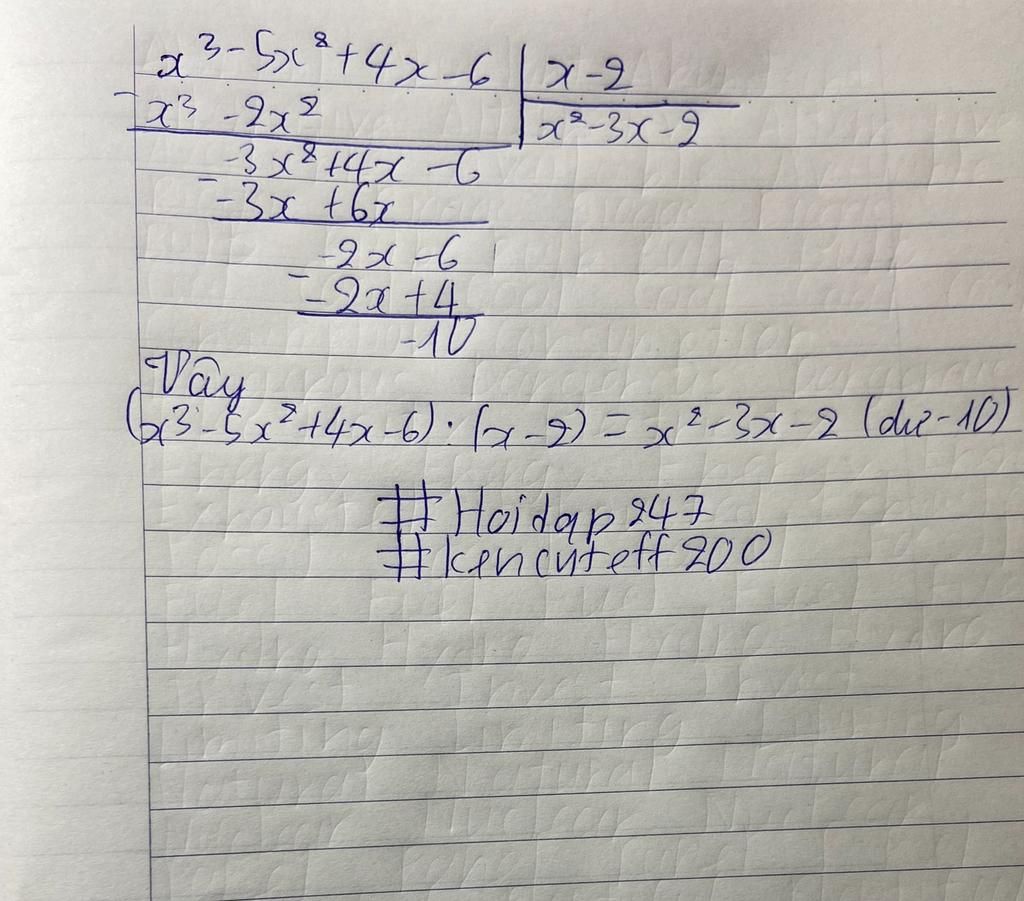 x³ - 5x² + 4x - 6 | x - 2
- x³ - 2x² | x² - 3x - 2
-3x² + 4x - 6
- -3x + 6x
-2x - 6
- -2x + 4
-10
Vậy
(x³ - 5x² + 4x - 6) : (x - 2) = x² - 3x - 2 (dư -10)
#Hoidap247
#kencuteff200